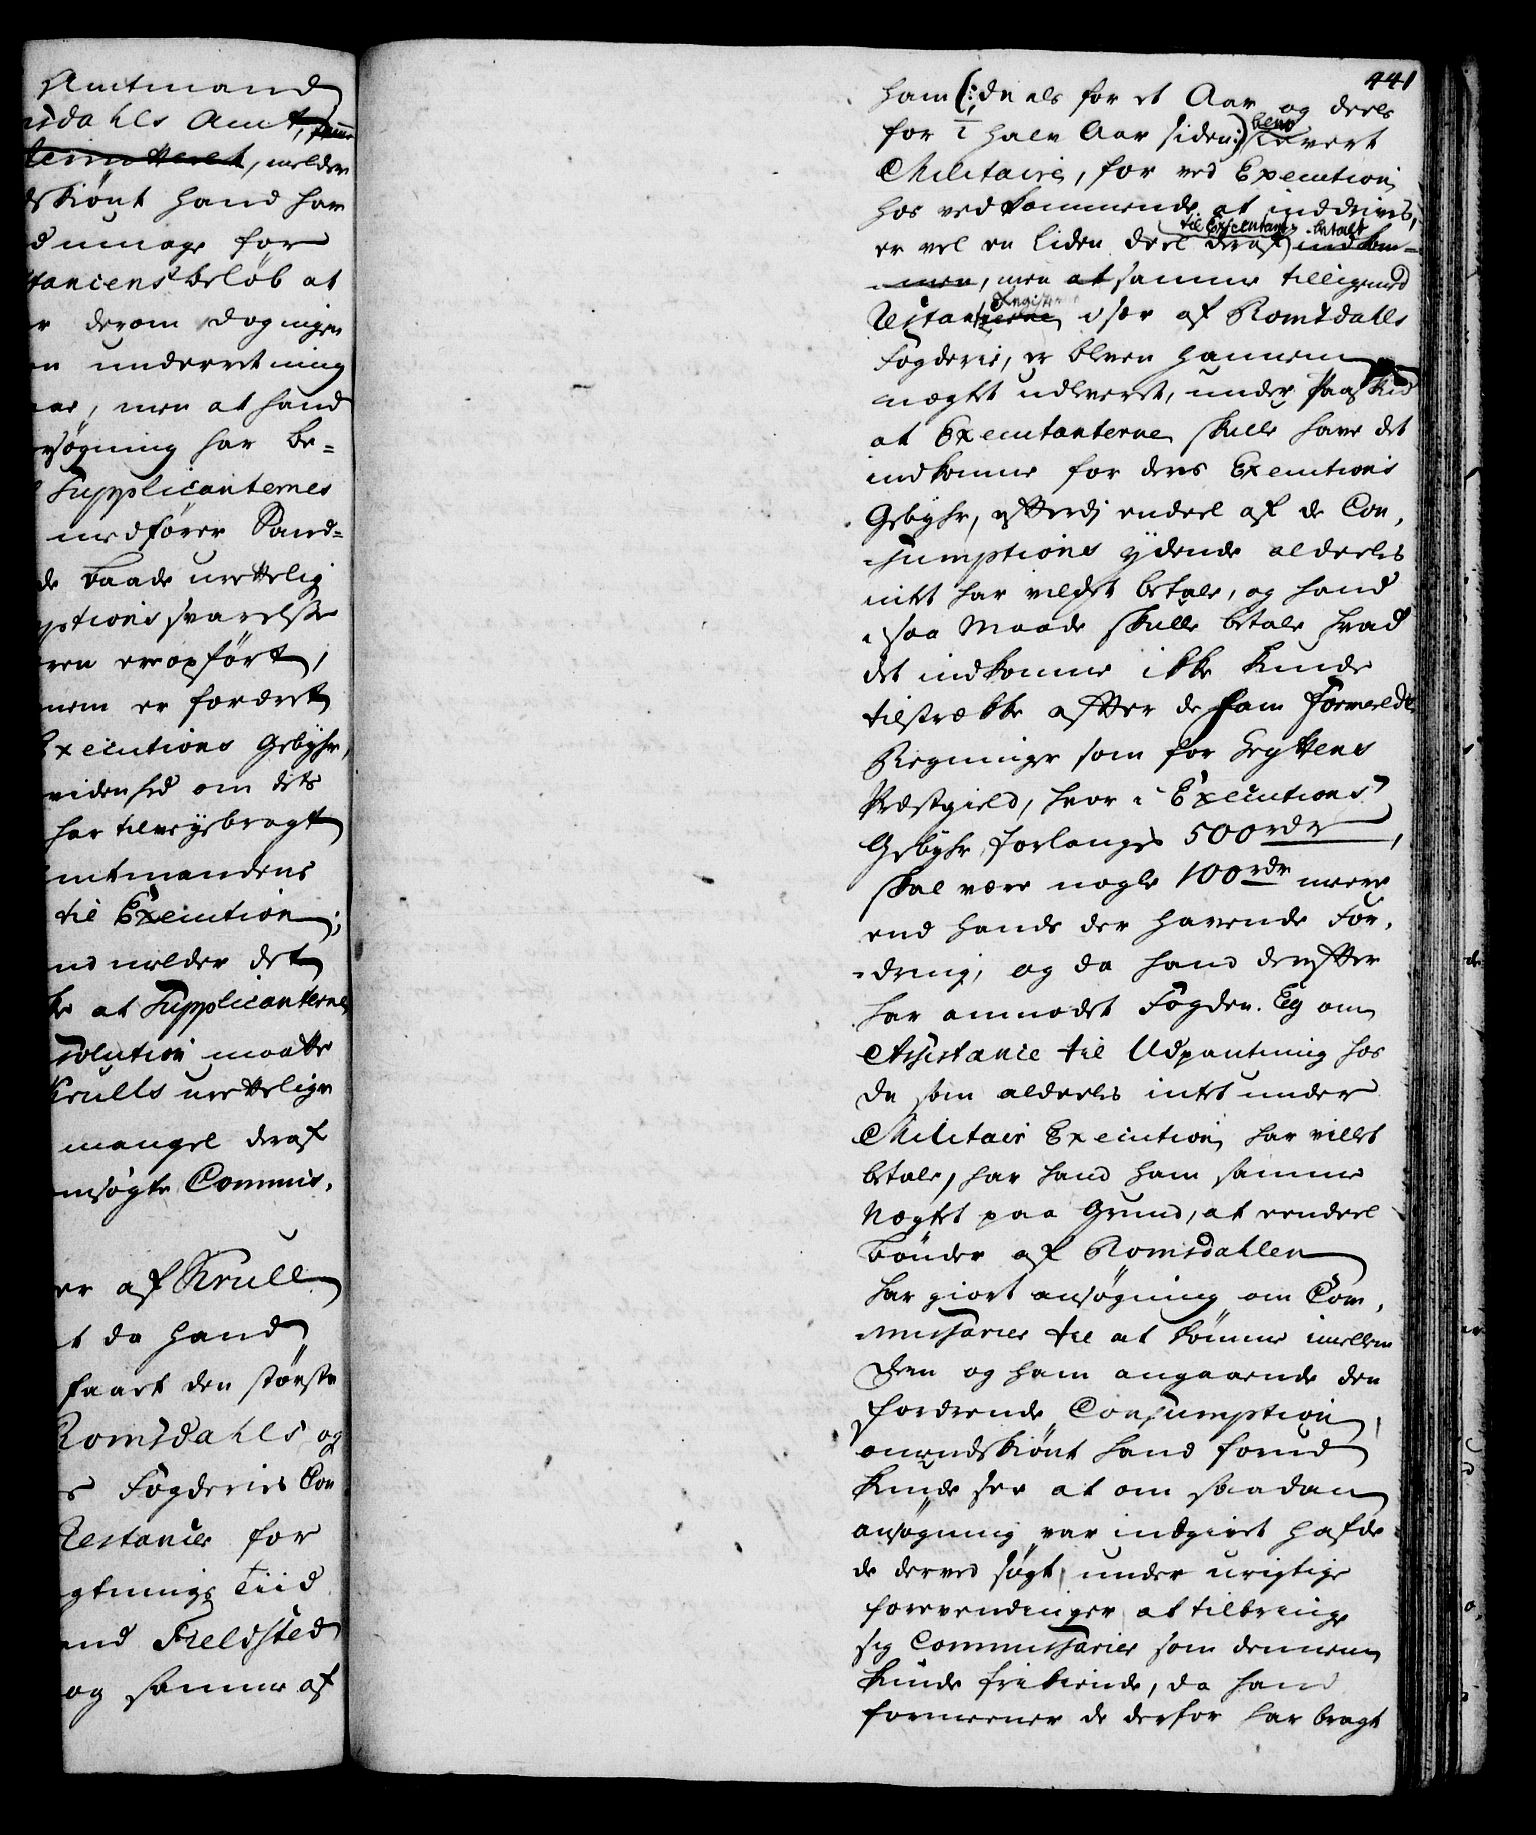 Amtmand
sdahls Amt,
, melder
skiönt hand har
d umage for
tancens beløb at
r derom dog ingen
n underretning
ar, men at hand
søgning har be-
Supplicanternes
medfører Sand-
de baade urettelig
ptions svarelse
ren er opført,
nem er fordret
Executions Gebyhr,
videnhed om dets
har tilveyebragt
mtmandens
til Execution;
nd melder det
ke at Supplicanterne
solution maatte
Krulls urettelige
mangel deraf
nsøgte Commis-
er af Krull
t da hand
faaet den største
Romsdahls og
s Fogderies Con
Restance for
gtnings Tiid
and Fieldsted
og samme af
441
ham (: deels for et Aar og deels
for 1 halv Aar siden:) blev leveret
Militaire, for ved Execution
hos vedkommende at inddrives,
er vel en liden deel deraf til Executant. betalt indkom-
men, men at samme tilligemed
Restancerne i sær af Romsdahls
Fogderie, er bleven hannem
nægtet udleveret, under Paaskud
at Executanterne skulle have det
indkomne for deres Executions
Gebyhr, efterdj endeel af de Con-
sumptions ydende aldeeles
intet har villet betale, og hand
i saa Maade skulle betale hvad
det indkomne ikke kunde
tilstrække efter de ham formeldte
Regninger som for Gryttens
Præstegield, hvor i Executions
Gebyhr forlanges 500 rdr,
skal være nogle 100 rdr meere
end hands der havende For-
dring, og da hand derefter
har anmodet Fogden Eeg om
Assistance til Udpantning hos
de som aldeeles intet under
Militair Execution har villet
betale, har hand ham samme
Nægtet paa Grund, at eendeel
bönder af Romsdahlen
har giort ansøgning om Com-
missarier til at dømme imellem
dem og ham angaaende den
fordrende Consumption,
onendskiönt hand forud
kunde see at om saadan
ansøgning var indgivet hafde
de derved søgt under urigtige
forevendinger at tilbringe
sig Commissarier som dennem
kunde frikiende, da hand
formeener de derfor har bragt